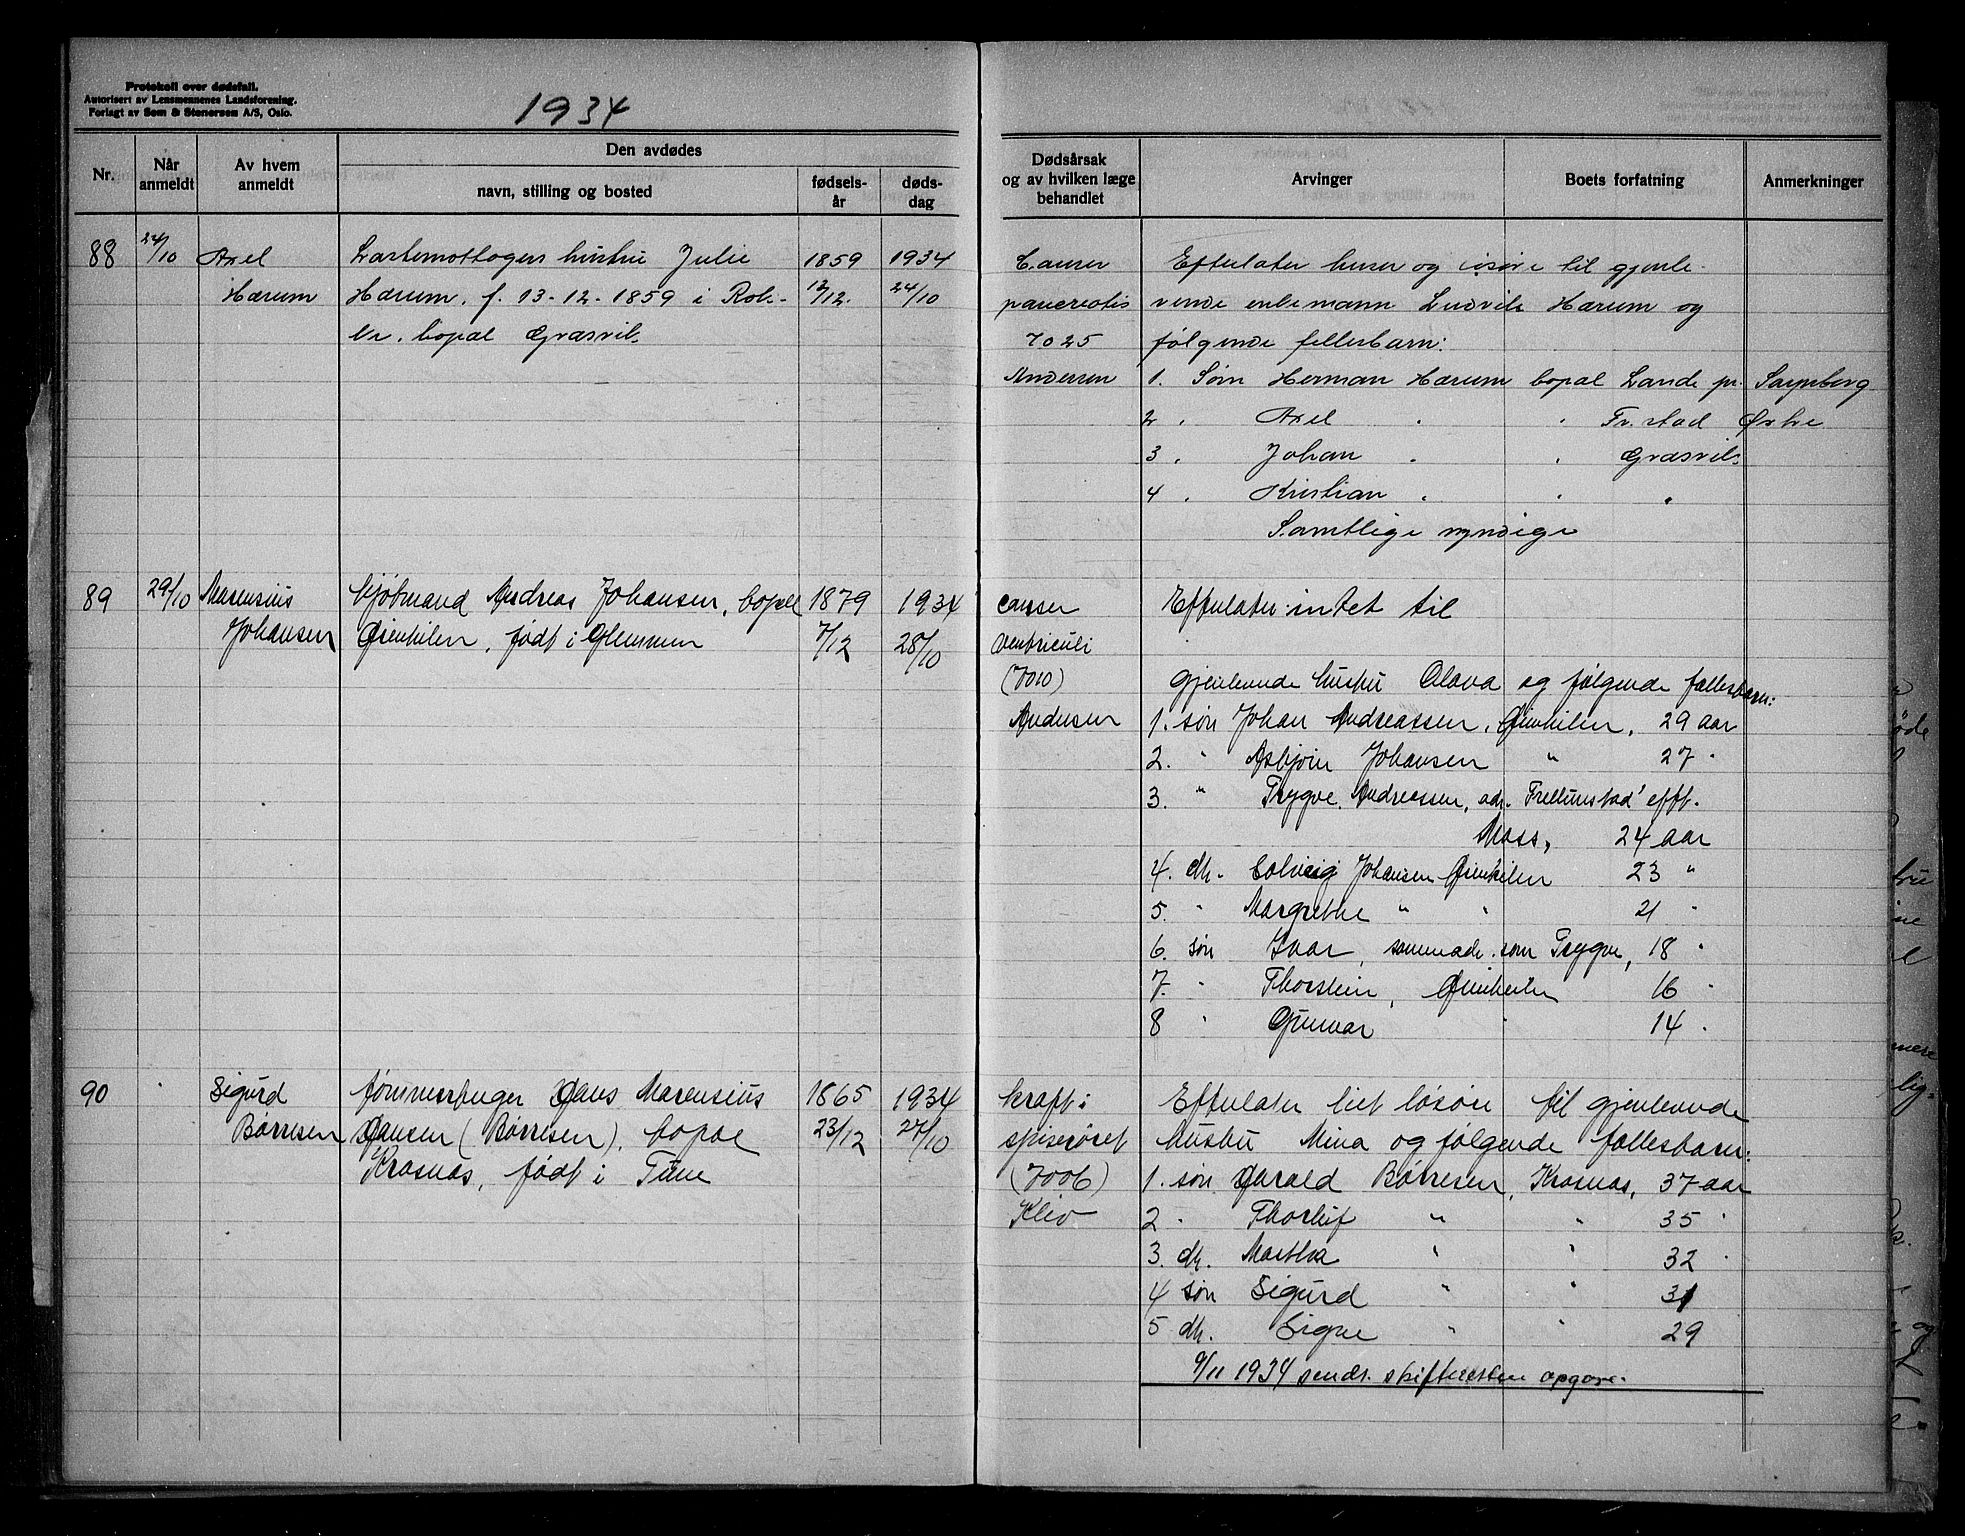 Protokoll over dødsfall.
Autorisert av Lensmennenes Landsforening.
Forlagt av Sem & Stenersen A/S, Oslo.
1934
Nr.
Når anmeldt
Av hvem anmeldt
Den avdødes
navn, stilling og bosted
fødsels-år
døds-dag
Dødsårsak
og av hvilken læge
behandlet
Arvinger
Boets forfatning
Anmerkninger
88 24/10 Axel Lastemottagers hustru Julie 1859 1934
Hærum Hærum. f. 13-12-1859 i Rok- 13/12. 24/10
ke. bopæl Græsvik.
Cancer
pancreatis
7025
Andersen
Efterlater huser og løsøre til gjenle-
vende enkemann Ludvik Hærum og
følgende fellesbarn:
1. Sønn Herman Hærum bopæl Lande pr. Sarpsborg
2 . Axel . . Fr.stad Østre
3 . Johan . . Græsvik.
4 . Kristian . . .
Samtlige myndige
89 29/10 Marensius Andreas Johansen, bopæl 1879 1934
Johansen Øienkilen, født i Glemmen 7/12 28/10
cancer
ventriculi
(7010)
Andersen
Efterlater intet til
gjenlevende hustru Olava og følgende fællesbarn:
1. søn Johan Andreassen, Øienkilen, 29 aar
2. " Asbjørn Johansen " 27 "
3. " Trygve Andreassen, adr. Trellunstad' efft.
Moss, 24 aar
4. dtr. Solveig Johansen Øienkilen 23 "
5. " Margrethe " " 21 "
6. søn Ivar, samme adr. som Trygve, 18 "
7. " Thorstein, Øienkilen 16 "
8 " Gunvar " 14 "
90 " Sigurd tømmerhuger Hans Marensius 1865 1934
Børresen Hansen (Børresen), bopæl 23/12 27/10
Kråsnes, født i Tune
kræft i
spiserøret
(7006)
Klev
Efterlater litet løsøre til gjenlevende
hustru Mina og følgende fællesbarn:
1. søn Harald Børresen, Kråsnes, 37 aar
2 " Thorleif " " 35 "
3. dtr. Martha " " 32 "
4 søn Sigurd " " 31
5 dtr. Signe " " 29
9/11 1934 sendt skifteretten opgave.